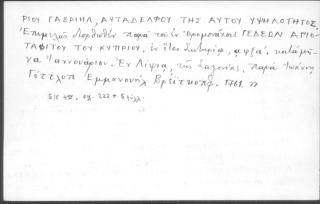 ΡΙΟΥ ΓΑΒΡΙΗΛ, ΑΥΤΑΔΕΛΦΟΥ ΤΗΣ ΑΥΤΟΥ ΥΨΗΛΟΤΗΤΟΣ.
Ἐπιμελῶς διορθωθὲν παρὰ τοῦ ἐν ἱερομονάχοις ΓΕΔΕΩΝ ΑΓΙΟ-
ΤΑΦΙΤΟΥ ΤΟΥ ΚΥΠΡΙΟΥ. ἐν ἔτει Σωτηρίῳ, αψξα΄. κατὰ μῆ-
να Ἰαννουάριον. Ἐν Λιψίᾳ, τῆς Σαξονίας. παρὰ Ἰωάννῃ
Γόττλοπ Ἐμμανουὴλ Βρέϊτκοπφ. 1761. »
Εἰς 4ον. σς. 222 +